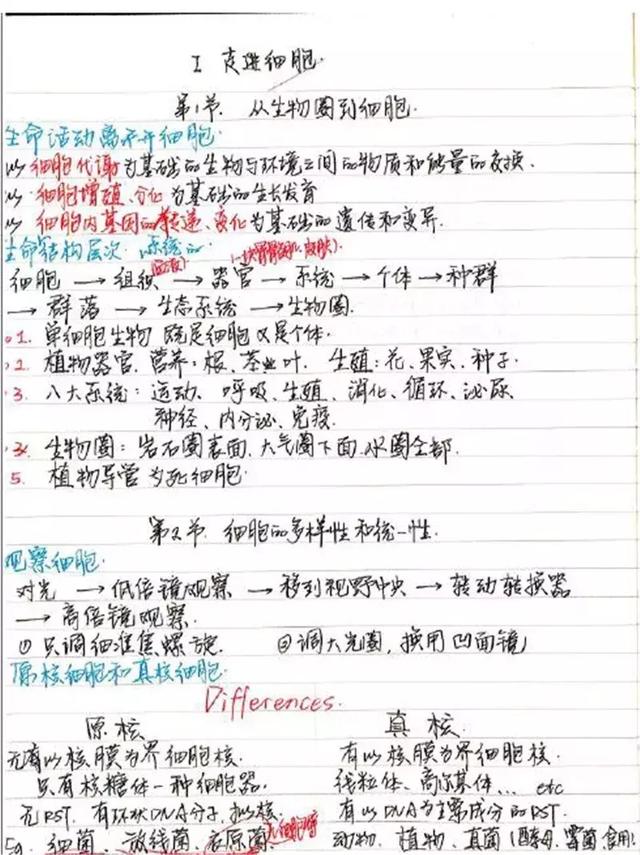 I 走进细胞.
第1节. 从生物圈到细胞.
生命活动离不开细胞.
以细胞代谢为基础的生物与环境之间的物质和能量的交换.
以细胞增殖、分化为基础的生长发育
以细胞内基因的传递、变化为基础的遗传和变异.
生命结构层次:系统的
细胞 → 组织 → 器官 → 系统 → 个体 → 种群
→ 群落 → 生态系统 → 生物圈.
1. 单细胞生物 既是细胞又是个体.
2. 植物器官. 营养:根、茎、叶. 生殖:花、果实、种子.
3. 八大系统:运动、呼吸、生殖、消化、循环、泌尿、
神经、内分泌、免疫.
生物圈:岩石圈表面. 大气圈下面. 水圈全部.
5. 植物导管为死细胞.
第2节. 细胞的多样性和统一性.
观察细胞.
对光 → 低倍镜观察 → 移到视野中央 → 转动转换器
→ 高倍镜观察.
① 只调细准焦螺旋. ②调大光圈, 换用凹面镜
原核细胞和真核细胞.
Differences.
原核 真核.
无有以核膜为界细胞核. 有以核膜为界细胞核.
只有核糖体一种细胞器. 线粒体、高尔基体... etc
无RST. 有环状DNA分子, 拟核. 有以DNA为主要成分的RST.
Eg. 细菌、放线菌、衣原菌 动物、植物、真菌(酵母、霉菌、食用